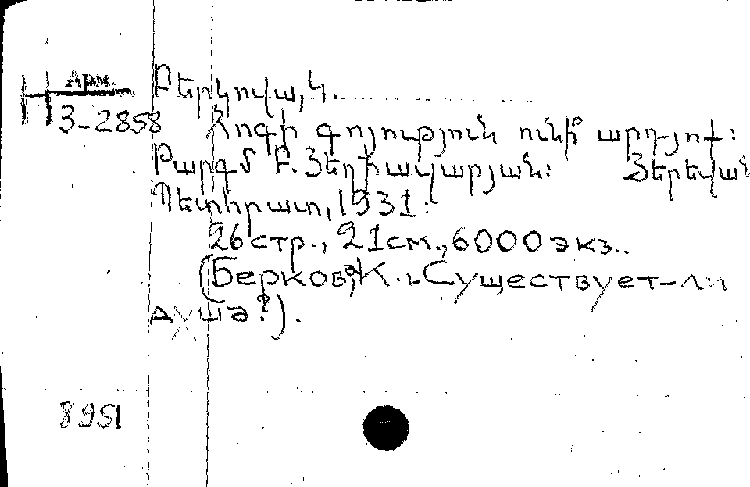 Арм.
3-2858
Բերկովա, Կ.
Հոգի գոյություն ունի՞ արդյոք:
Թարգմ Բ. Յեղիազարյան: Յերեվան
Պետհրատ, 1931:
26 стр., 21 см., 6000 экз..
(Беркова, К. Существует-ли
душа?).
8951